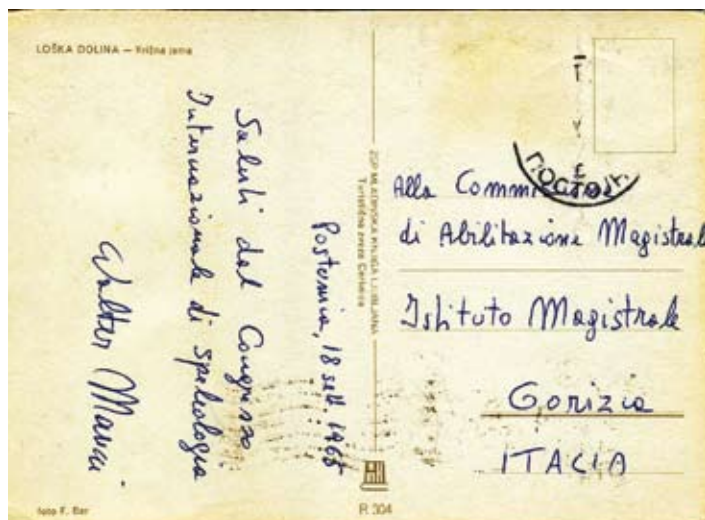 LOŠKA DOLINA — Križna jama
Postumia, 18 sett. 1965
Saluti dal Congresso
Internazionale di Speleologia
Walter
ZGP MLADINSKA KNJIGA LJUBLJANA
Turistična zveza Cerknica
Alla Commissione
di Abilitazione Magistrale
Istituto Magistrale
Gorizia
ITALIA
foto F. Bar
R 304